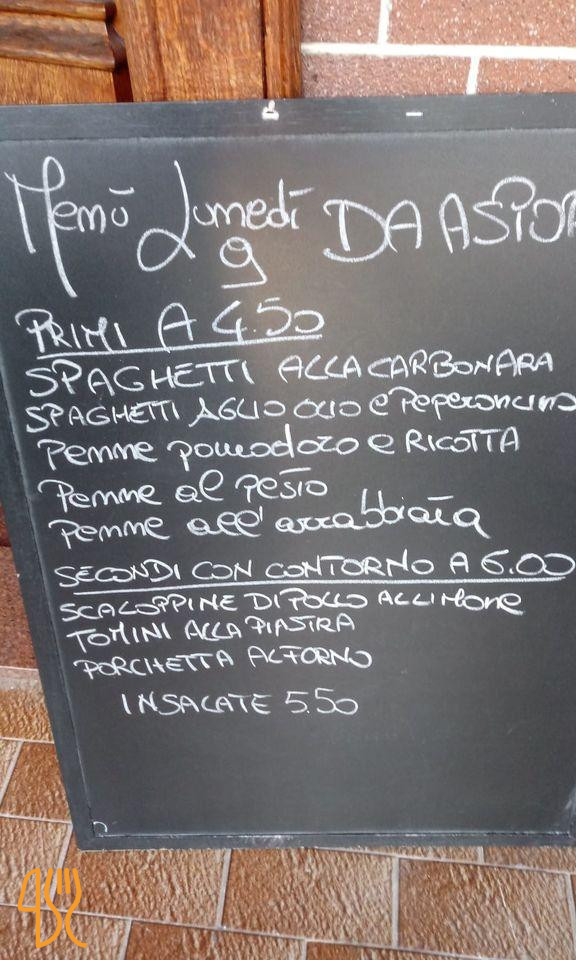 Menù Lunedì DA ASPOR
9
PRIMI A 4.50
SPAGHETTI ALLA CARBONARA
SPAGHETTI AGLIO OLIO e Peperoncino
Penne pomodoro e RICOTTA
Penne al pesto
Penne all'arrabbiata
SECONDI CON CONTORNO A 6.00
SCALOPPINE DI POLLO AL LIMONE
TOMINI ALLA PIASTRA
PORCHETTA AL FORNO
INSALATE 5.50